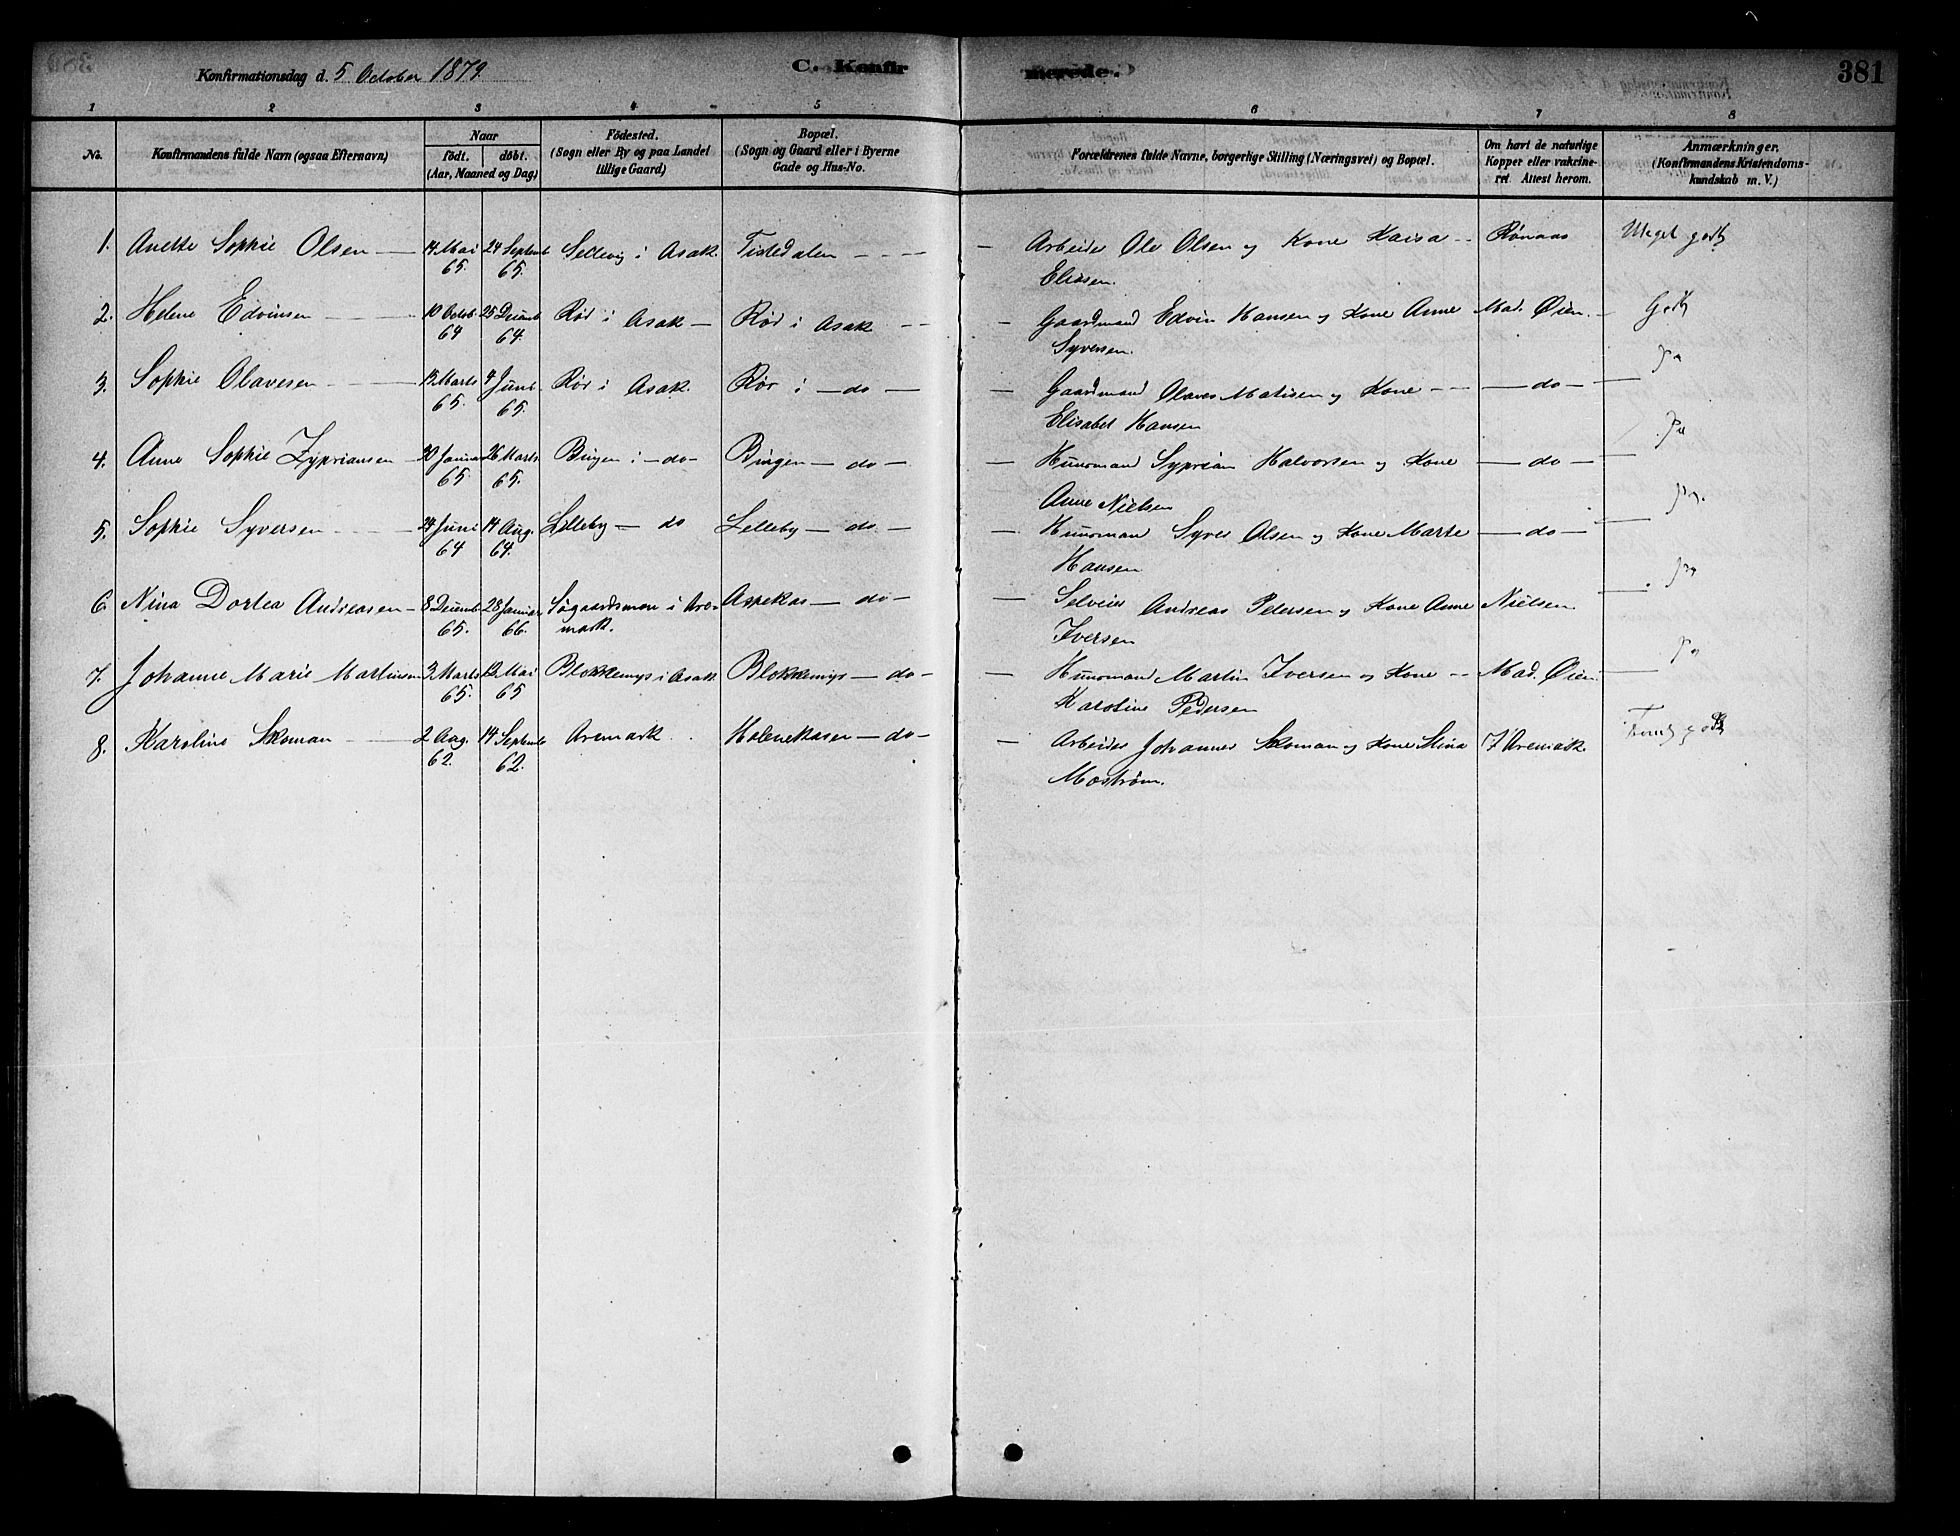 Konfirmationsdag d. 5 October 1879. C. Konfirmerede. 381
1 2 3 4 5 6 7 8
No. Konfirmandens fulde Navn (ogsaa Efternavn) Naar födt. döbt. (Aar, Maaned og Dag) Födested. (Sogn eller By og paa Landet tillige Gaard) Bopæl. (Sogn og Gaard eller i Byerne Gade og Hus-No. Forældrenes fulde Navne, borgerlige Stilling (Næringsvei) og Bopæl. Om havt de naturlige Kopper eller vakcineret. Attest herom. Anmærkninger. (Konfirmandens Kristendomskundskab m. V.)
1. Anette Sophie Olsen — 14 Mai 65 24 Septemb 65. Sellevig i Asak. Tistedalen - - - — Arbeider Ole Olsen og Kone Kaisa - - Rønaas Meget godt
Eliasen.
2. Helene Edvinsen 10 Octob 64 25 Decemb 64. Rød i Asak — Rød i Asak - - — Gaardmand Edvin Hansen og Kone Anne Mad. Øien. — Godt
Syversen.
3. Sophie Olavesen 15 Marts 65. 4 Juni 65. Rör i Asak Rör i — do — — Gaardmand Olaves Matisen og Kone - - — do —
Elisabet Hansen
4. Anne Sophie Zypriansen 30 Januar 65. 26 Marts 65. Bingen i — do — Bingen — do — — Huusmand Syprian Halvorsen og Kone — do —
Anne Nielsen
5. Sophie Syversen 24 Juni 64 14 Aug. 64. Lilleby — do Lelleby — do — — Huusmand Syver Olsen og Kone Marte — do —
Hansen
6. Nina Dortea Andreasen 8 Decemb 65. 28 Januar 66. Søgaardsmon i Aremark. Aspekas — do — — Selveier Andreas Pedersen og Kone Anne Nielsen
Iversen
7. Johanne Marie Martinsen 3 Marts 65. 12 Mai 65 Blokkemyr i Asak Blokkemyr — do — — Huusmand Martin Iversen og Kone - - Mad. Øien
Karoline Pedersen
8. Karoline Skoman 2 Aug. 62. 14 Septemb 62. Aremark Holenekasen — do — — Arbeider Johannes Skoman og Kone Stina I Aremark godt
Mostrøm.